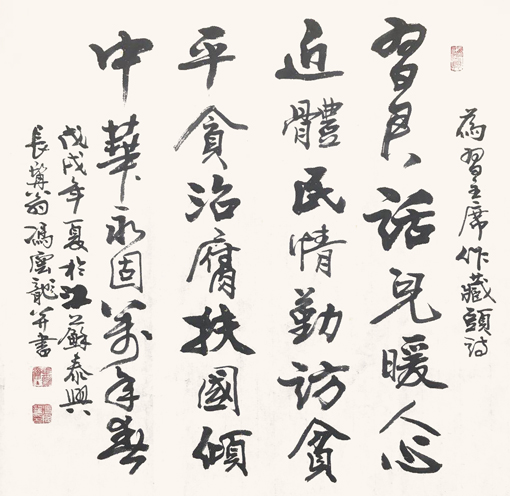 為習主席作藏頭詩
習話兒暖人心
近體民情勤訪貧
平貪治腐扶國傾
中華永固萬年春
戊戌年夏於江蘇泰興
長髯翁馮雲龍并書